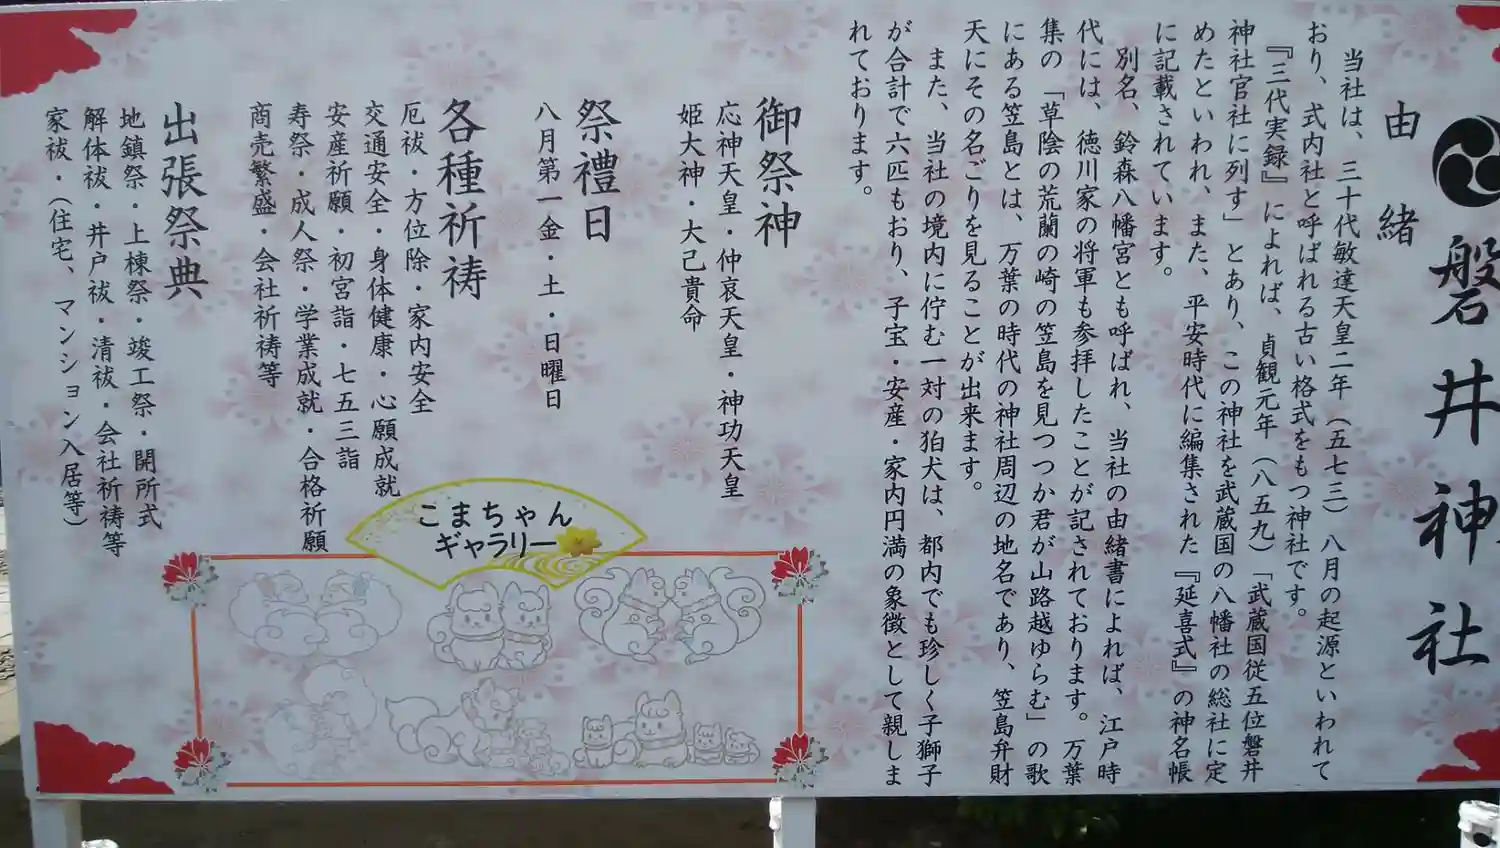 磐井神社
由緒
当社は、三十代敏達天皇二年(五七三)八月の起源といわれて
おり、式内社と呼ばれる古い格式をもつ神社です。
『三代実録』によれば、貞観元年(八五九)「武蔵国従五位磐井
神社官社に列す」とあり、この神社を武蔵国の八幡社の総社に定
めたといわれ、また、平安時代に編集された『延喜式』の神名帳
に記載されています。
別名、鈴森八幡宮とも呼ばれ、当社の由緒書によれば、江戸時
代には、徳川家の将軍も参拝したことが記されております。万葉
集の「草陰の荒藺の崎の笠島を見つつか君が山路越ゆらむ」の歌
にある笠島とは、万葉の時代の神社周辺の地名であり、笠島弁財
天にその名ごりを見ることが出来ます。
また、当社の境内に佇む一対の狛犬は、都内でも珍しく子獅子
が合計で六匹もおり、子宝・安産・家内円満の象徴として親しま
れております。
御祭神
応神天皇・仲哀天皇・神功天皇
姫大神・大己貴命
祭禮日
八月第一金・土・日曜日
各種祈祷
厄祓・方位除・家内安全
交通安全・身体健康・心願成就
安産祈願・初宮詣・七五三詣
寿祭・成人祭・学業成就・合格祈願
商売繁盛・会社祈祷等
出張祭典
地鎮祭・上棟祭・竣工祭・開所式
解体祓・井戸祓・清祓・会社祈祷等
家祓・(住宅、マンション入居等)
こまちゃん
ギャラリー